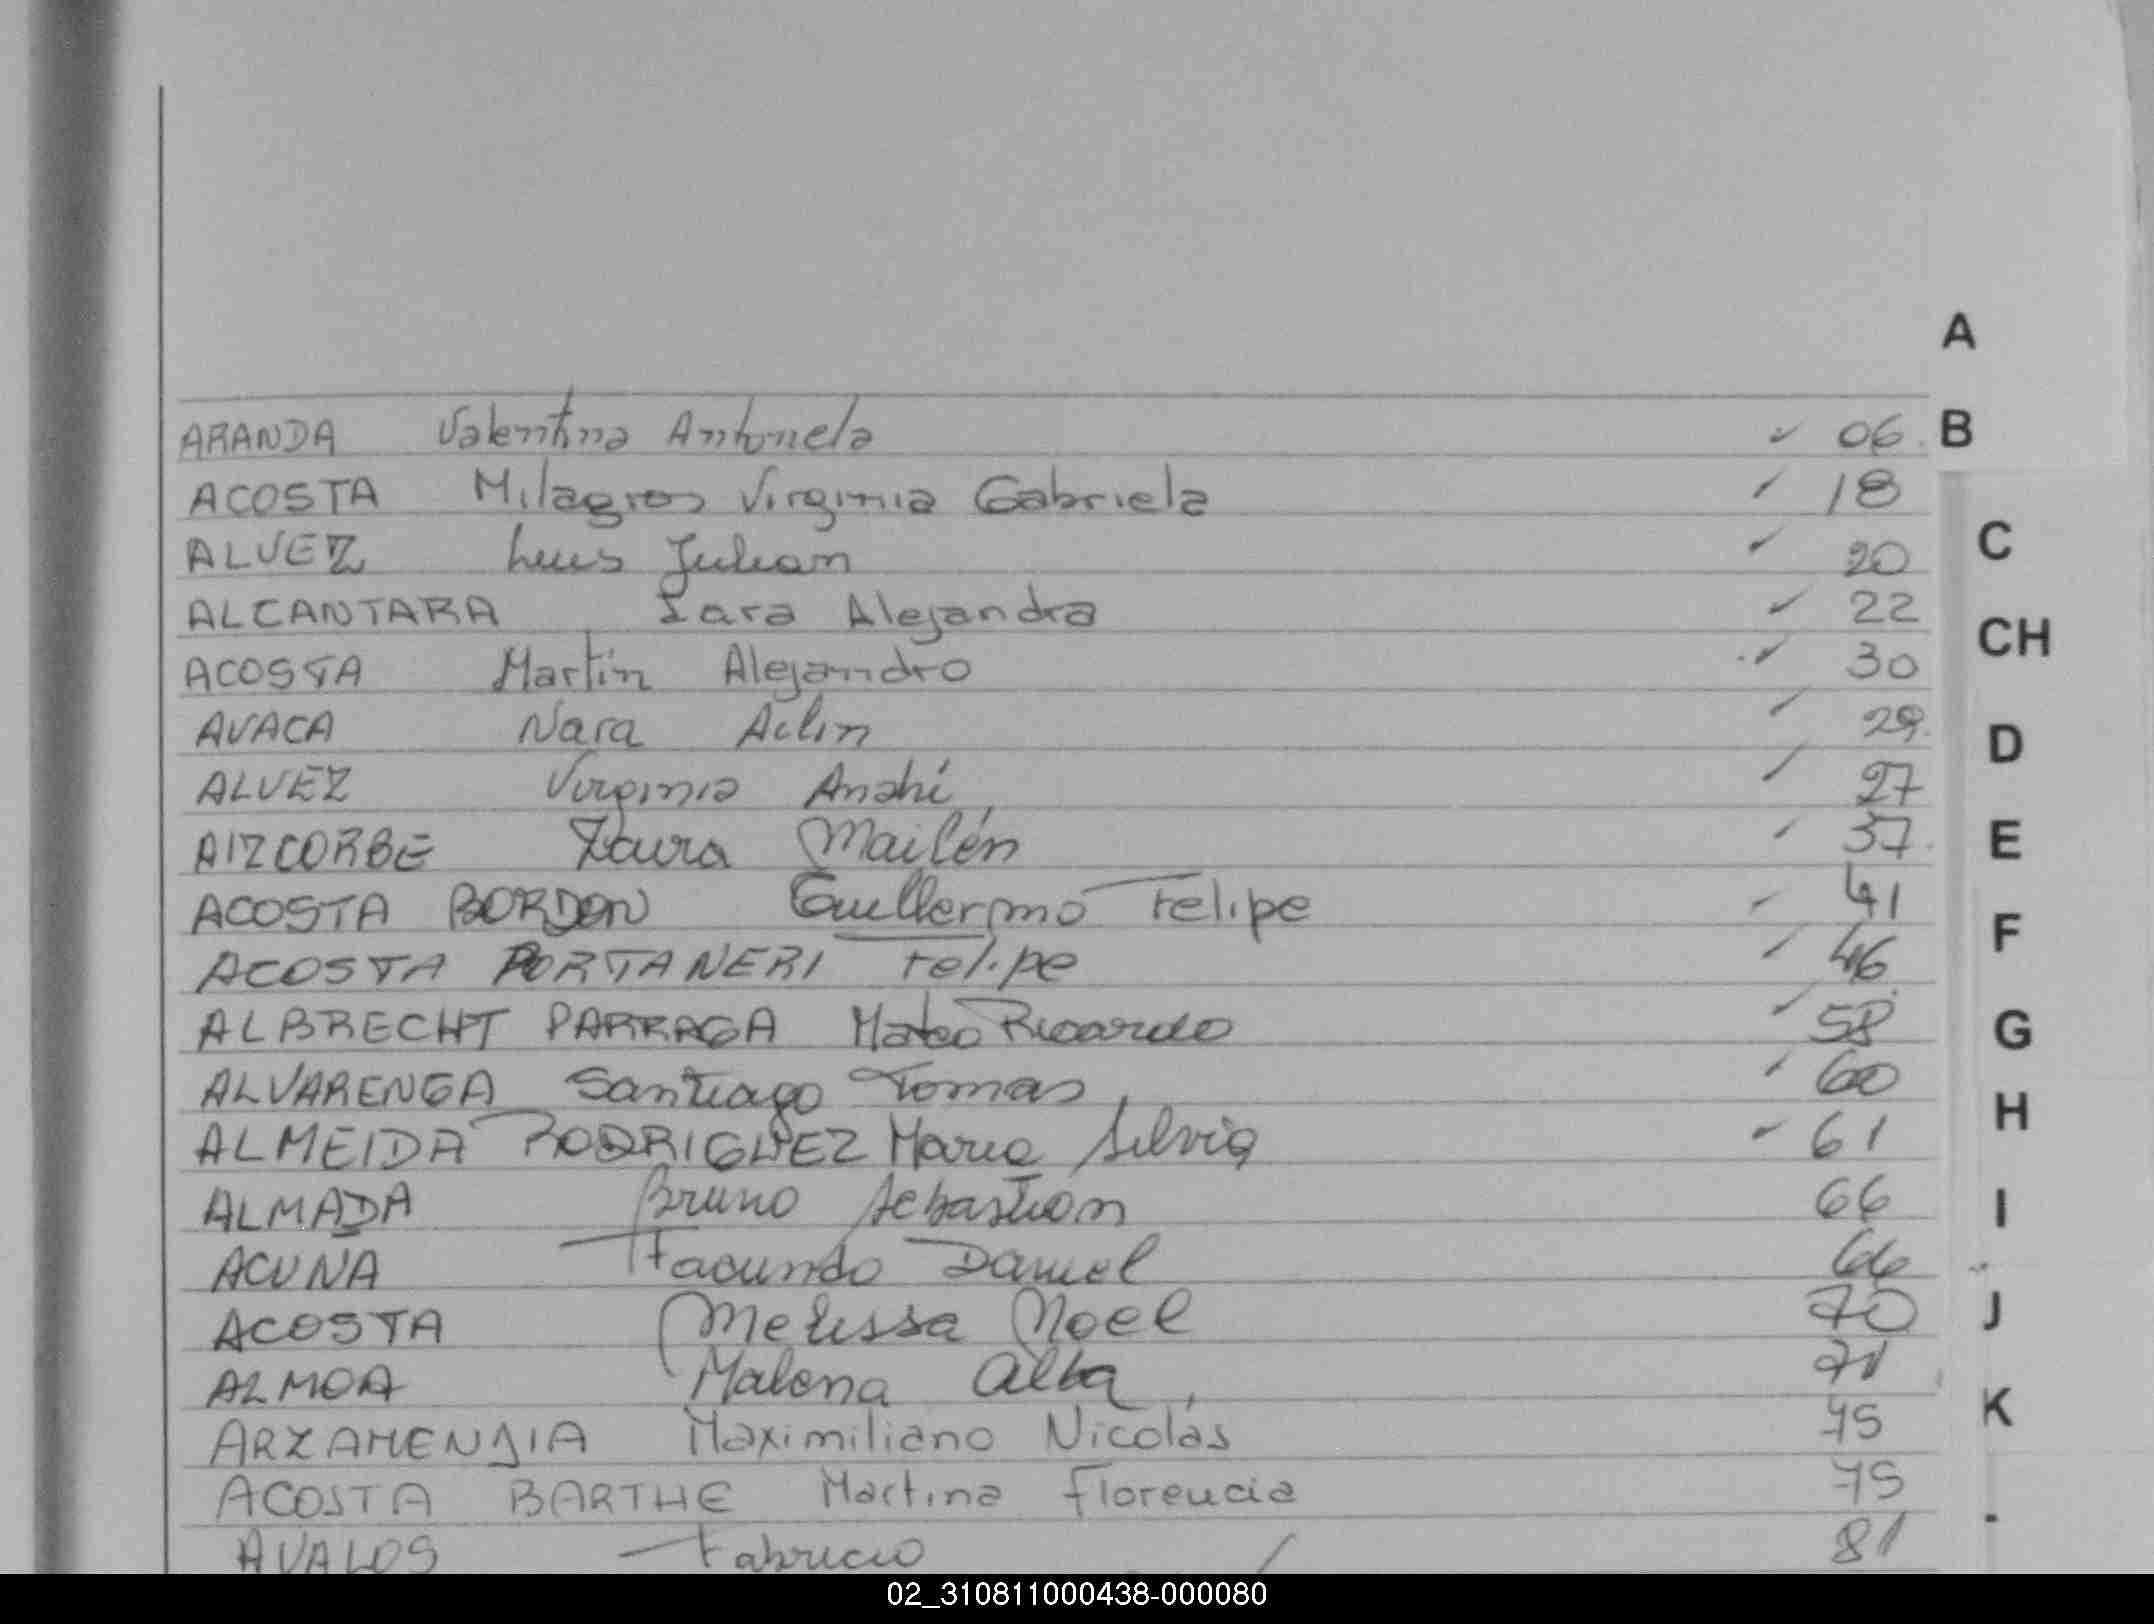 A
ARANDA Valentina Antonela ✓ 06. B
ACOSTA Milagros Virginia Gabriela ✓ 18
ALVEZ Luis Julian ✓ 20 C
ALCANTARA Iara Alejandra ✓ 22
CH
ACOSTA Martín Alejandro ✓ 30
AVACA Nara Ailin ✓ 29.
D
ALVEZ Virginia Anahí ✓ 27
AIZCORBE Zaura Mailén ✓ 37. E
ACOSTA BORDON Guillermo Felipe ✓ 41
F
ACOSTA PORTANERI Felipe ✓ 46
ALBRECHT PARRAGA Mateo Ricardo ✓ 58 G
ALVARENGA Santiago Tomas ✓ 60
H
ALMEIDA RODRIGUEZ Maria Silvia ✓ 61
ALMADA Bruno Sebastian 66 I
ACUNA Facundo Daniel 66
ACOSTA Melissa Noel 70 J
ALMOA Malena Alba 71
K
ARZAMENDIA Maximiliano Nicolás 75
ACOSTA BARTHE Martina Florencia 75
AVALOS Fabricio 81
02_310811000438-000080